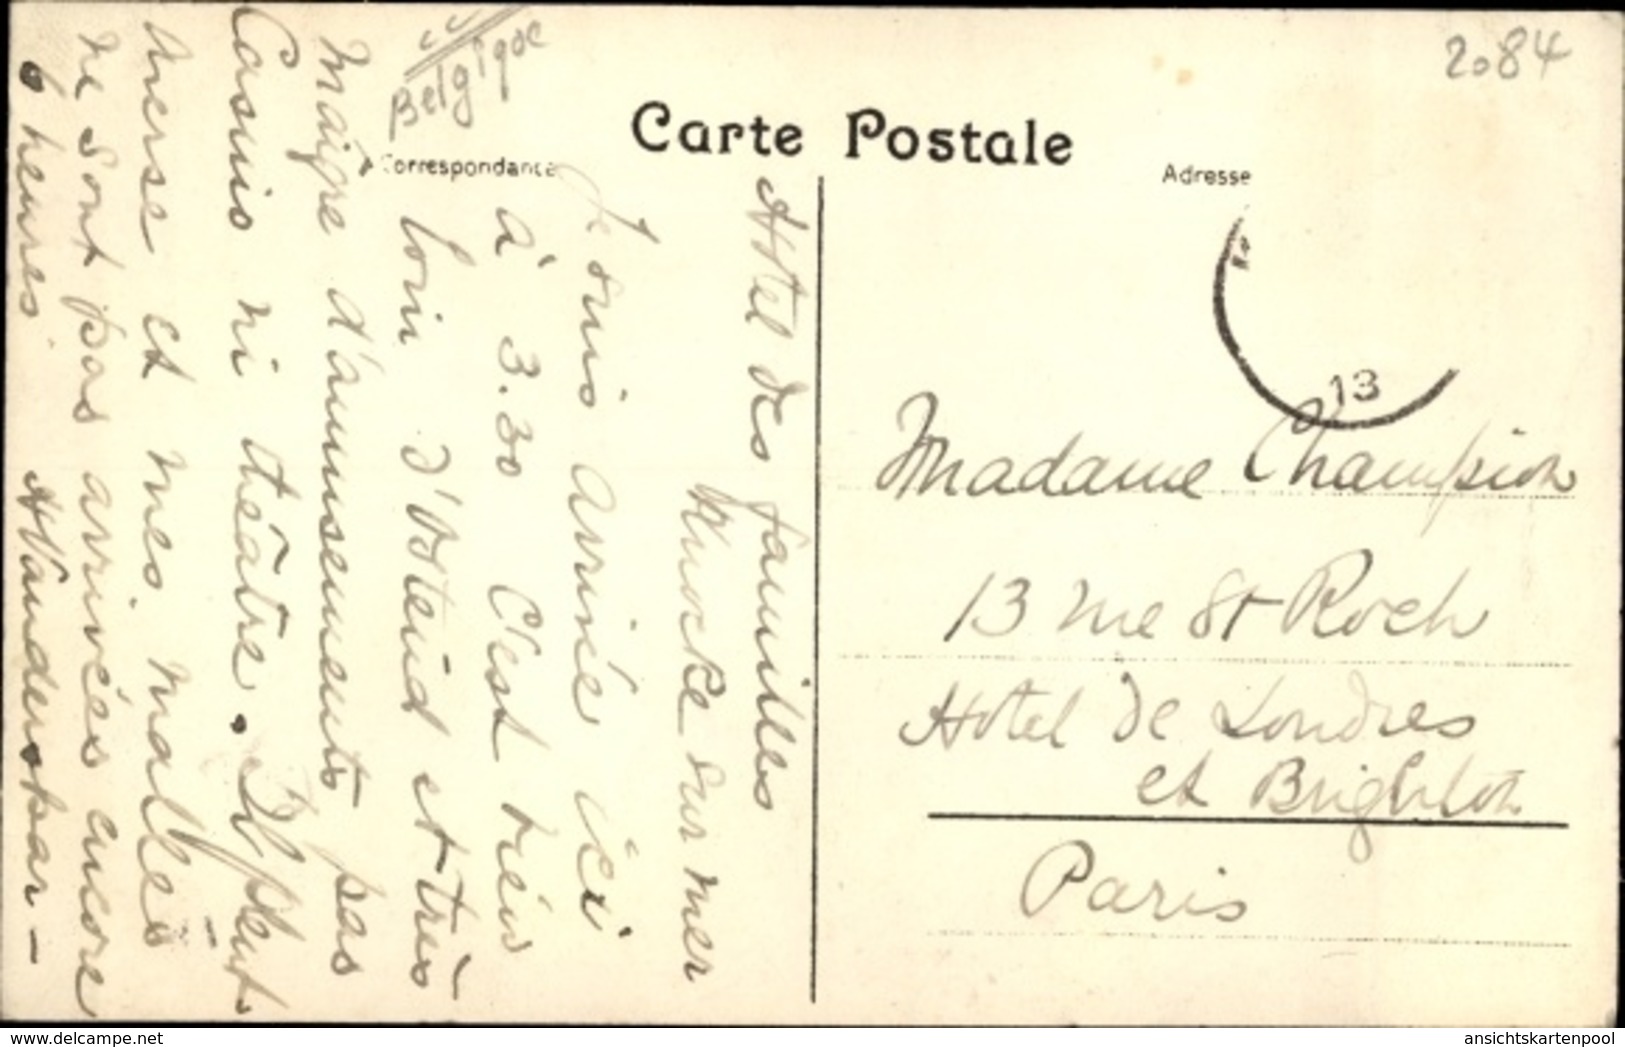 2084
Belgique
Carte Postale
Correspondance
Adresse
13
Hotel des familles
Knocke sur mer
Je suis arrivée ici
à 3.30 C'est très
loin d'Ostend et très
maigre d'amusements pas
Casino ni théâtre. Il pleut
averse et mes malles
ne sont pas arrivées encore
6 heures
Madame Champion
13 rue St Roch
Hotel de Londres
et Brighton
Paris
delcampe.net
ansichtskartenpool